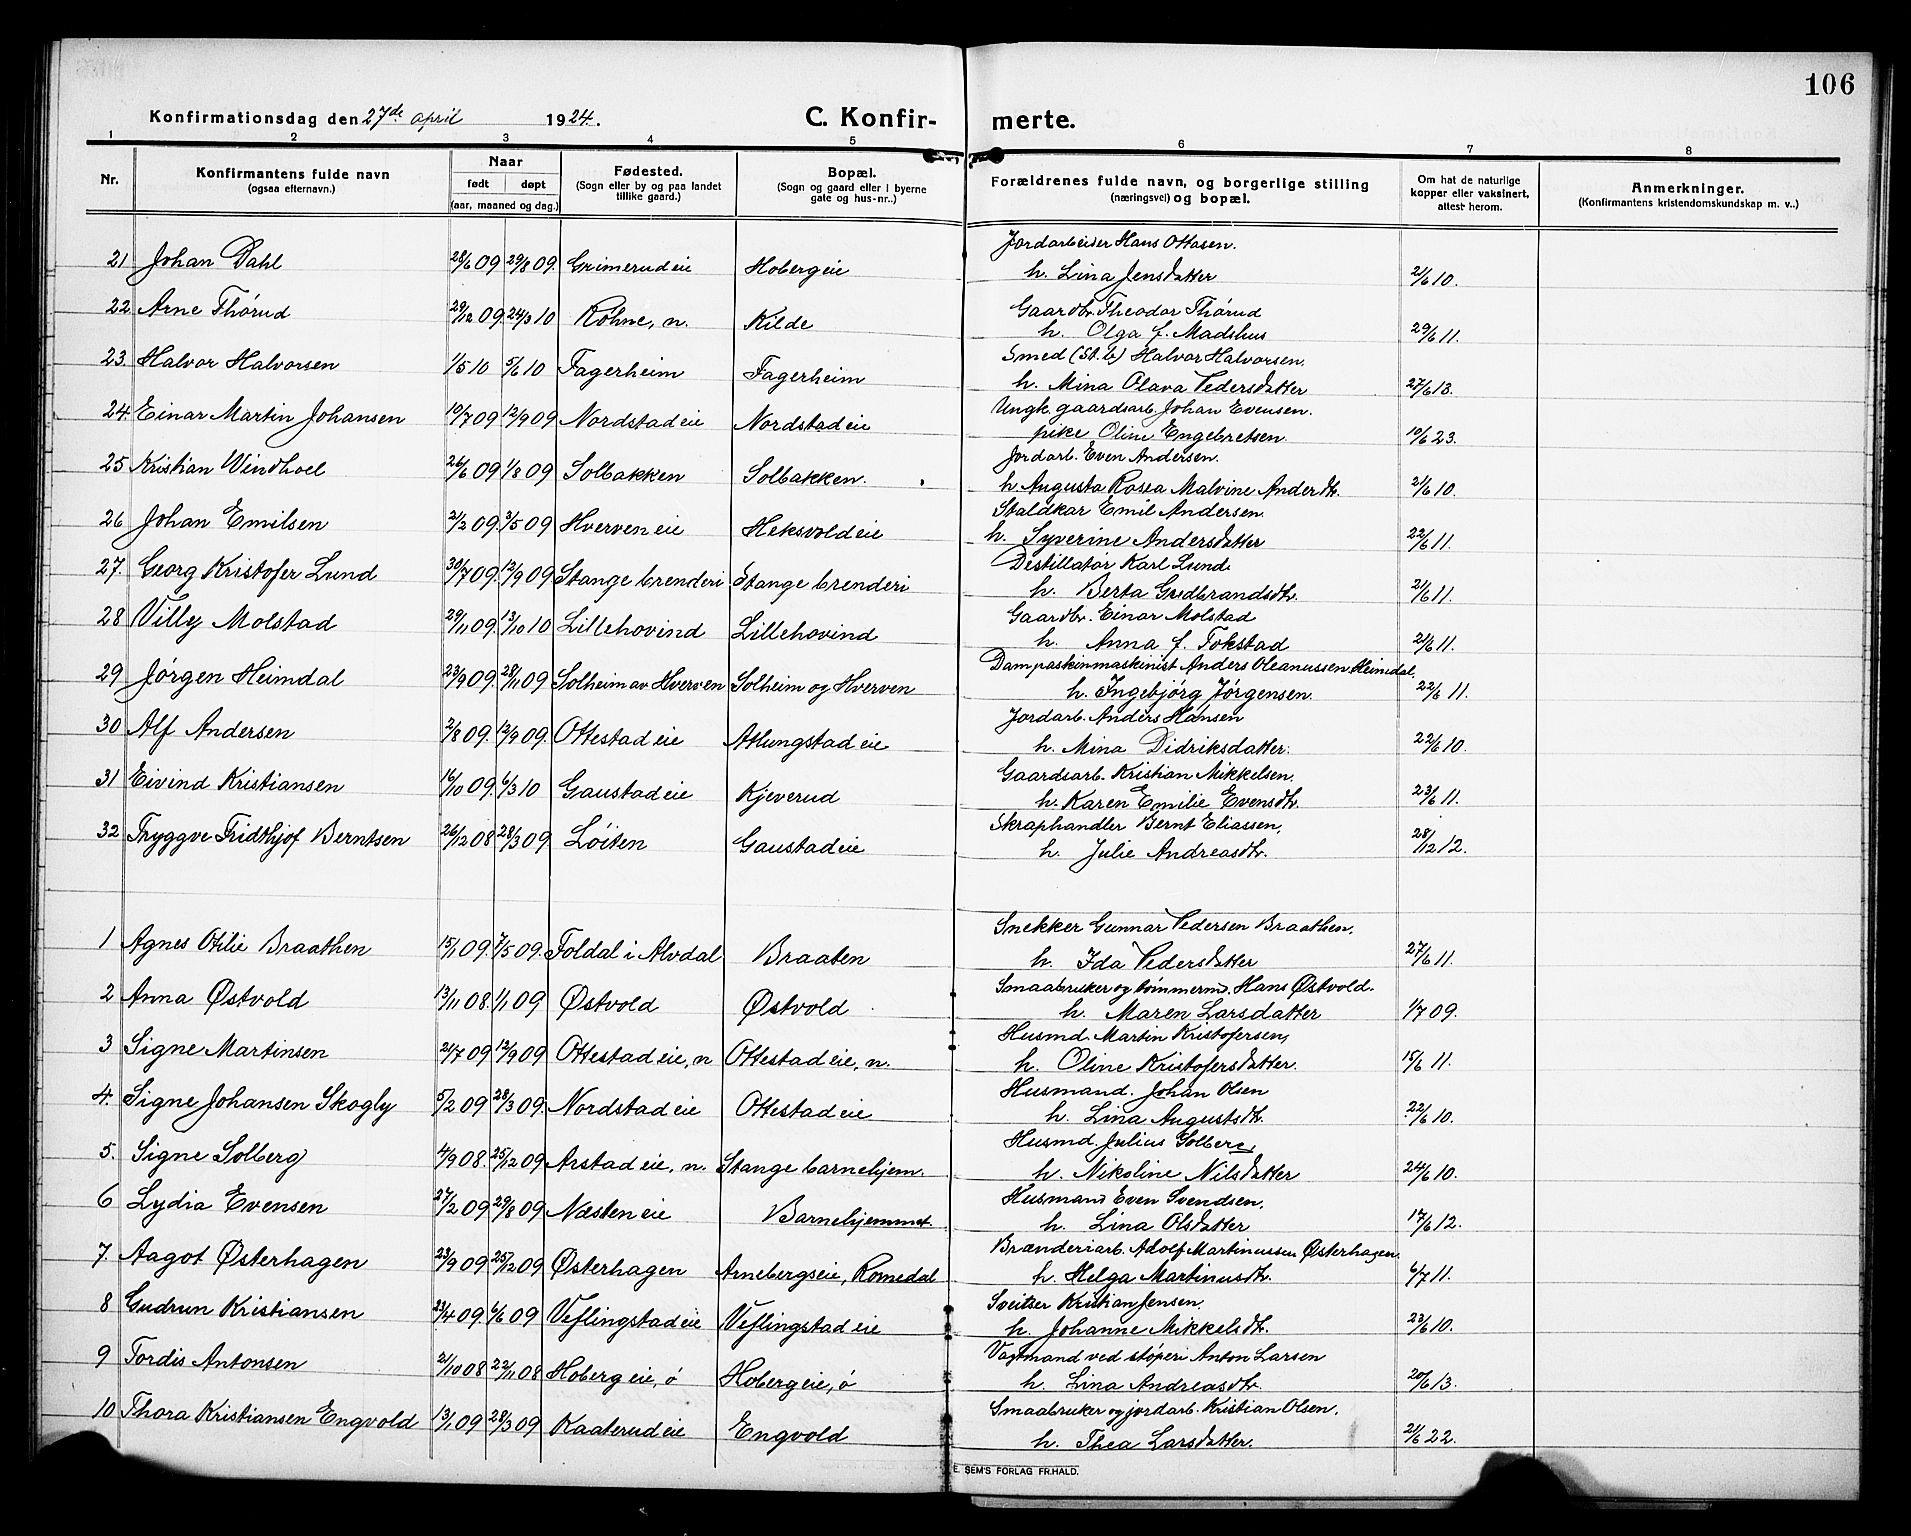 106
Konfirmationsdag den 27de april 1924. C. Konfirmerte.
1 2 3 4 5 6 7 8
Nr. Konfirmantens fulde navn (ogsaa efternavn.) Naar født døpt (aar, maaned og dag.) Fødested. (Sogn eller by og paa landet tillike gaard.) Bopæl. (Sogn og gaard eller i byerne gate og hus-nr..) Forældrenes fulde navn, og borgerlige stilling (næringsvei) og bopæl. Om hat de naturlige kopper eller vaksinert, attest herom. Anmerkninger. (Konfirmantens kristendomskundskap m. v..)
Jordarbeider Hans Ottosen.
21 Johan Dahl 28/6 09 29/8 09. Grimerudeie Hobergeie h. Lina Jensdatter 21/6 10.
Gaardbr. Theodor Thørud
22 Arne Thørud 29/12 09. 24/3 10 Røhne, n. Kilde h. Olga f. Madshus 29/6 11.
Smed (St.b) Halvor Halvorsen.
23. Halvor Halvorsen 1/5 10 5/6 10 Fagerheim Fagerheim h. Mina Olava Pedersdatter 27/6 13.
Ungk. gaardsarb. Johan Evensen.
24. Einar Martin Johansen 10/7 09 12/9 09 Nordstadeie Nordstadeie pike Oline Engebretsen. 10/6 23.
Jordarb. Even Andersen.
25 Kristian Windhoel 26/6 09 1/8 09 Solbakken Solbakken. h. Augusta Rosea Malvine Andersdtr. 21/6 10.
Staldkar Emil Andersen.
26 Johan Emilsen 2/2 09. 3/5 09 Hverveneie Heksvoldeie h. Syverine Andersdatter 22/6 11.
Destillatør Karl Lund.
27. Georg Kristofer Lund 30/7 09. 12/9 09 Stange brenderi Stange brenderi h. Berta Gudbrandsdtr. 21/6 11.
Gaardbr. Einar Molstad
28 Villy Molstad 29/11 09. 13/10 10 Lillehovind Lillehovind h. Anna f. Tokstad 21/6 11.
Dampaskinmaskinist Anders Oleanussen Heimdal,
29 Jørgen Heimdal 23/9 09. 28/11 09 Solheim av Hverven Solheim og Hverven h. Ingebjørg Jørgensen. 22/6 11.
Jordarb. Anders Hansen
30 Alf Andersen 2/8 09. 12/9 09. Ottestadeie Atlungstadeie h. Mina Didriksdatter. 22/6 10.
Gaardsarb. Kristian Mikkelsen.
31 Eivind Kristiansen 16/10 09. 6/3 10 Gaustadeie Kjeverud h. Karen Emilie Evensdtr. 23/6 11.
Skraphandler Bernt Eliassen,
32 Tryggve Fridthjof Berntsen 26/12 08 28/3 09. Løiten Gaustadeie h. Julie Andreasdtr. 28/12 12.
Snekker Gunnar Pedersen Braathen,
1 Agnes Otilie Braathen 15/1 09. 7/5 09. Foldal i Alvdal Braaten h. Ida Pedersdatter 27/6 11.
Smaabruker og tømmerm. Hans Østvold.
2 Anna Østvold 13/11 08. 1/1 09 Østvold Østvold. h. Maren Larsdatter 1/7 09.
Husmd. Martin Kristofersen,
3 Signe Martinsen 21/7 09 12/9 09 Ottestadeie, n Ottestadeie, n. h. Oline Kristofersdatter. 15/6 11.
Husmand. Johan Olsen
4. Signe Johansen Skogly 5/2 09 28/3 09. Nordstadeie Ottestadeie h. Lina Augustsdtr. 22/6 10.
Husmd. Julius Solberg,
5. Signe Solberg 4/9 08. 25/12 09 Arstadeie, n. Stange barnehjem. h. Nikoline Nilsdatter 24/6 10.
Husmand Even Svendsen.
6 Lydia Evensen 27/2 09 29/8 09 Næsteneie Barnehjemmet. h. Lina Olsdatter 17/6 12.
Brænderiarb. Adolf Martinussen Østerhagen.
7. Aagot Østerhagen 23/9 09 25/12 09 Østerhagen Arnebergseie, Romedal h. Helga Martinusdtr. 6/7 11.
Sveitser Kristian Jensen.
8 Gudrun Kristiansen 23/4 09. 6/6 09 Veflingstadeie Veflingstadeie h. Johanne Mikkelsdtr. 23/6 10.
Vagtmand ved støperi Anton Larsen
9 Tordis Antonsen 2/10 08 22/11 08 Hobergeie, ö Hobergeie, ö h. Lina Andreasdtr. 20/6 13.
Smaabruker og jordarb. Kristian Olsen.
10 Thora Kristiansen Engvold 13/1 09 28/3 09 Kaaterudeie Engvold h. Thea Larsdatter. 21/6 22.
E. SEM'S FORLAG FR.HALD.